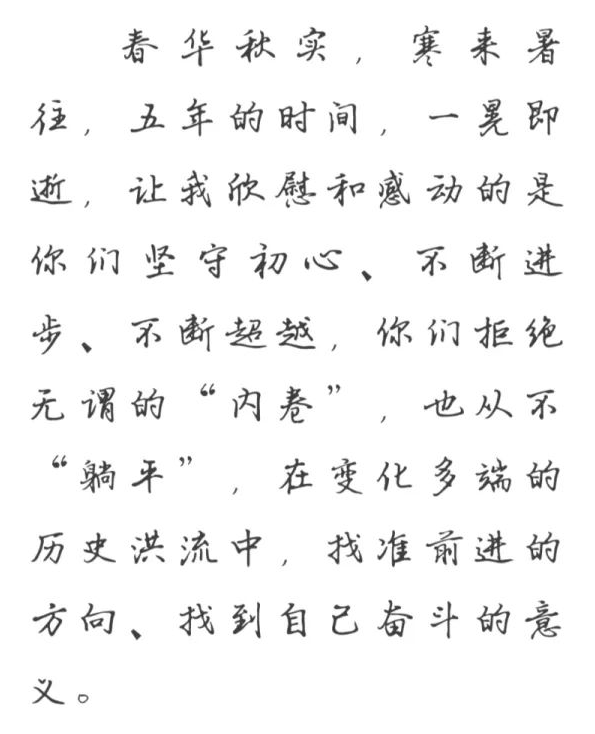 春华秋实，寒来暑
往，五年的时间，一晃即
逝，让我欣慰和感动的是
你们坚守初心、不断进
步、不断超越，你们拒绝
无谓的“内卷”，也从不
“躺平”，在变化多端的
历史洪流中，找准前进的
方向、找到自己奋斗的意
义。